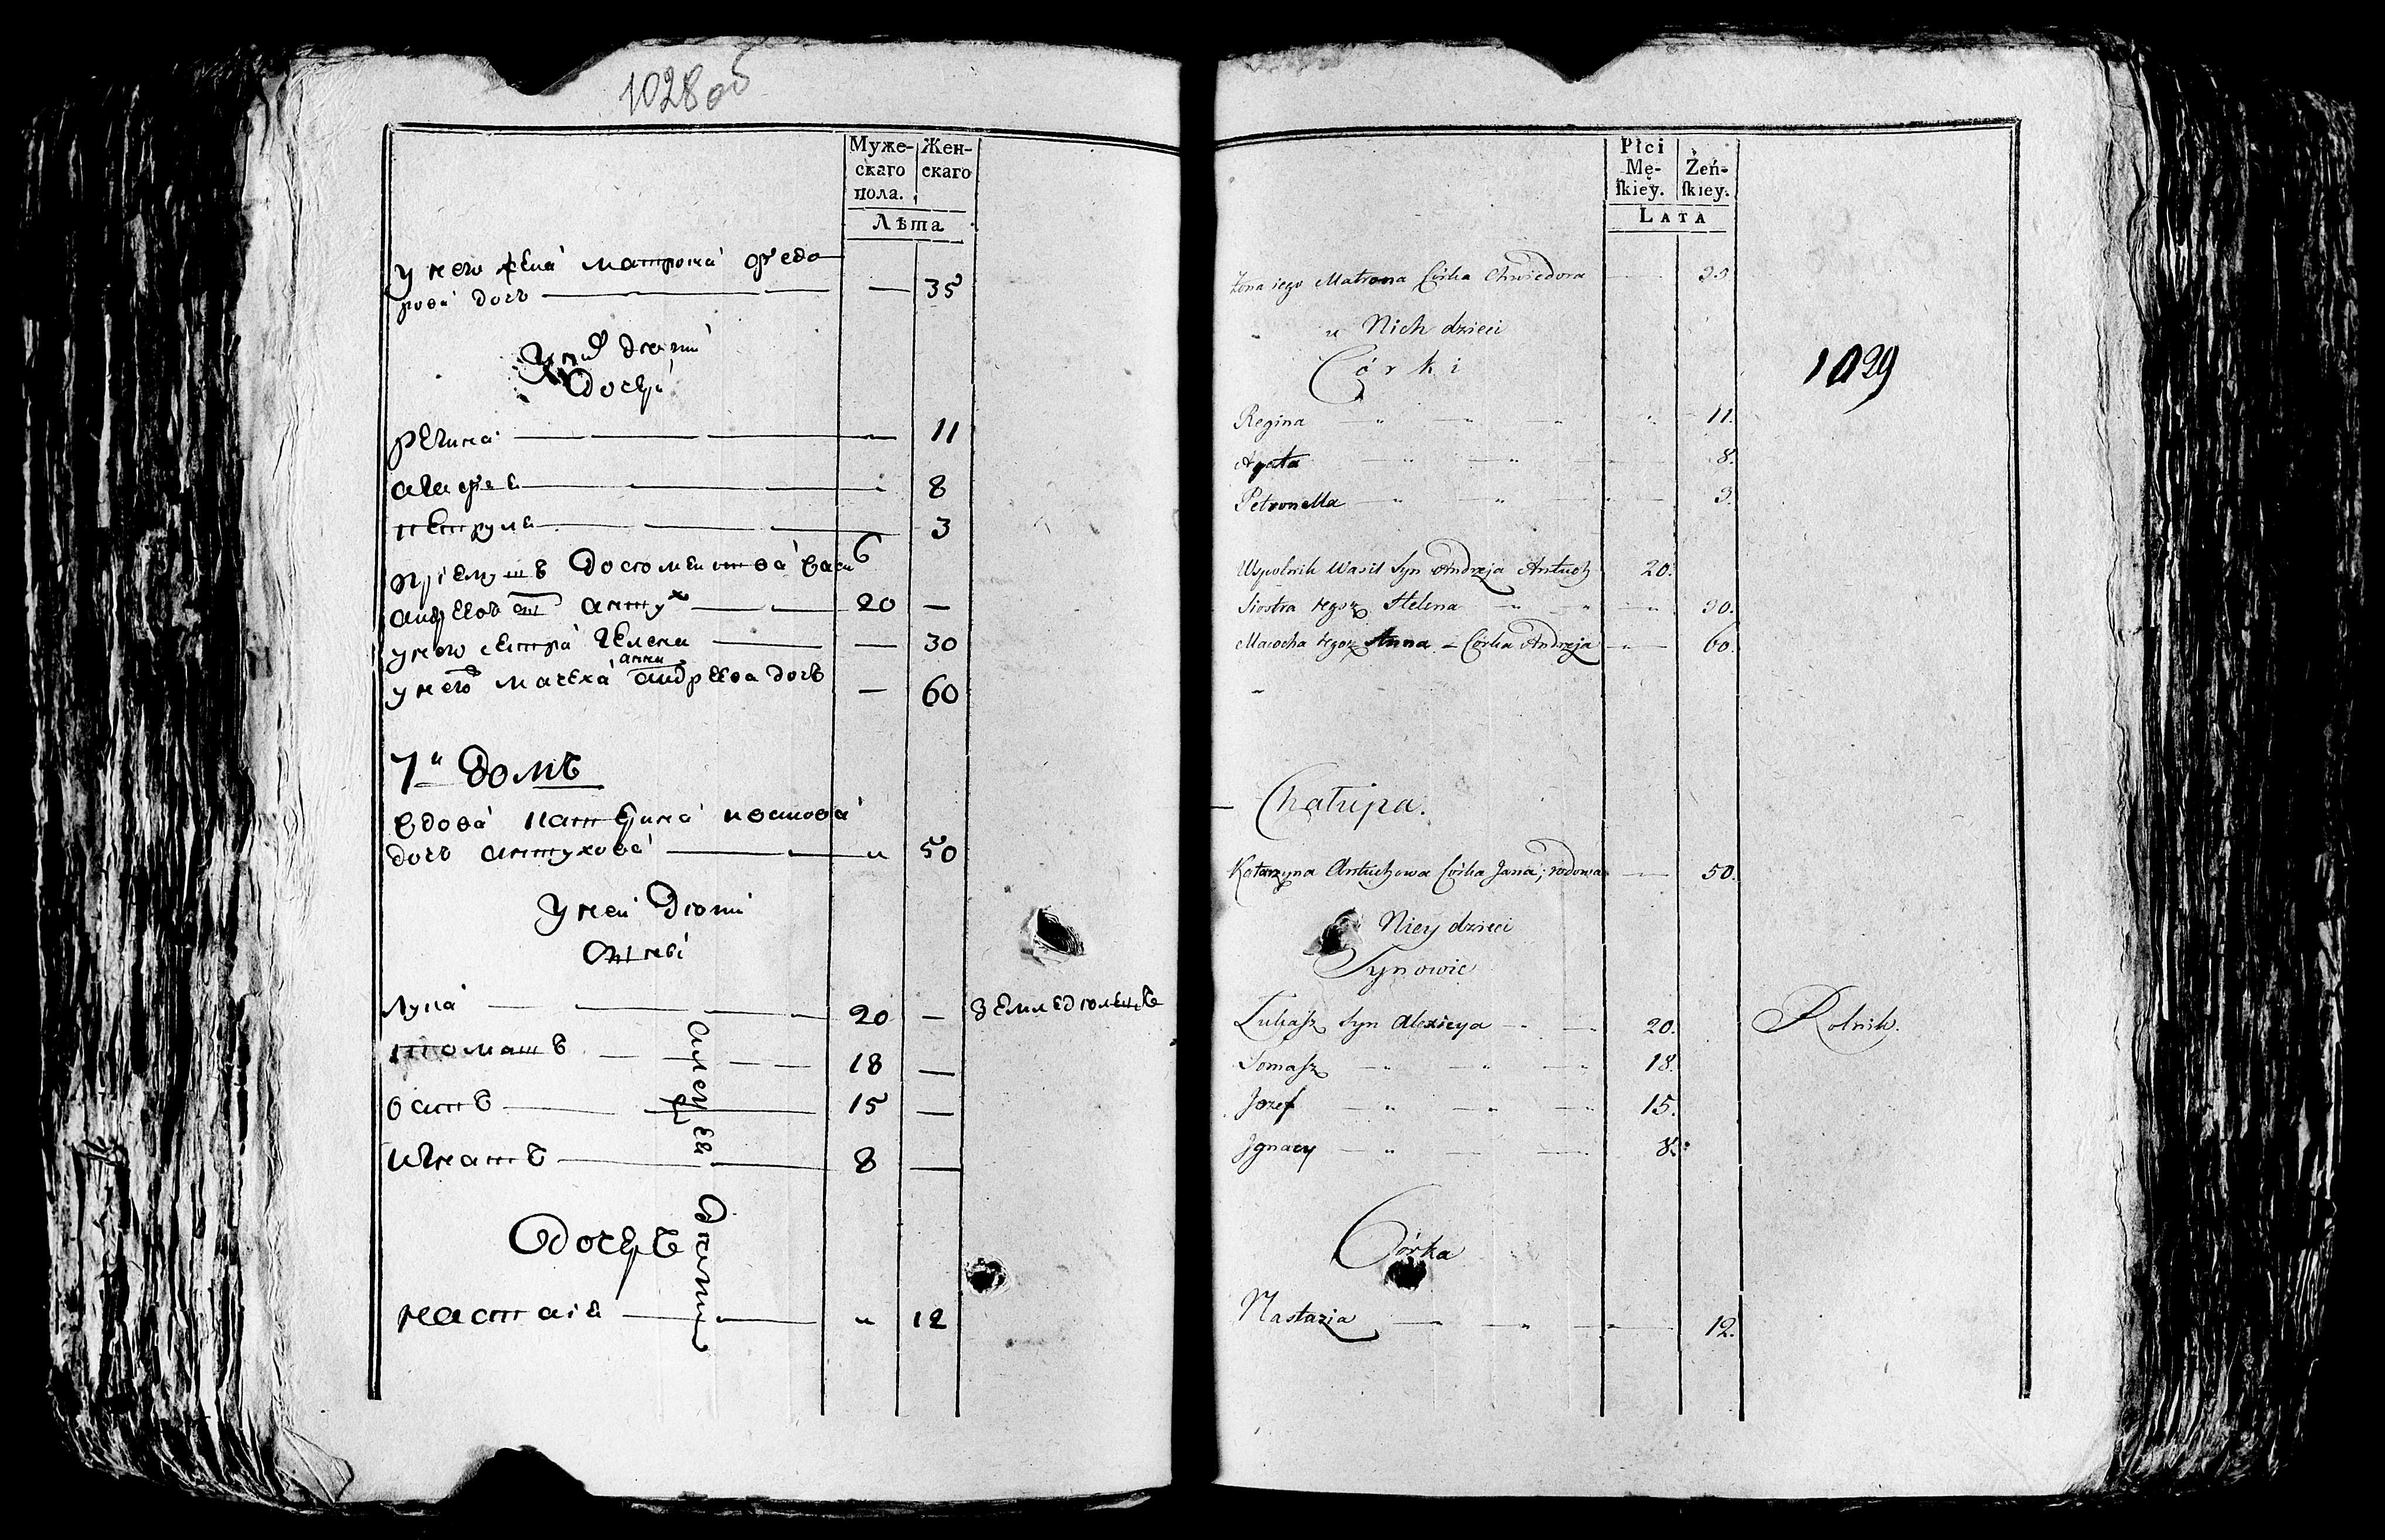 1028об
Муже-
скаго
пола.
Жен-
скаго
Лѣта
у него жена матрона федо
рова дочь — 35
У них дѣти
дочери
регина — 11
агафея — 8
петруля — 3
приемышъ васи
андреевъ антух 20 —
у него сестра гелена — 30
у него мачеха анна андреева дочь — 60
7й домъ
вдова катерина иванова
дочь антухова " 50
У ней дѣти
сынові
лука 20 — земледѣлецъ
томашъ 18 —
осипъ 15 —
игнатъ 8 —
алексѣев
дѣти
дочерь
настасія " 12
Płci
Mę-
ſkiey.
Żeń-
ſkiey.
LATA
1029
Żona iego Matrona Córka Chwiedora 35
u Nich dzieci
Córki
Regina 11.
Agata 8.
Petronella 3.
Wspolnik Wasil Syn Andrzeja Antuch 20.
Siostra tegoż Helena 30.
Macocha tegoż Anna Corka Andrzeja 60.
Chałupa.
Katarzyna Antuchowa Córka Jana, wdowa 50.
u Niey dzieci
Synowie
Łukasz Syn Alexieya 20. Rolnik.
Tomasz 18.
Jozef 15.
Jgnacy 8.
Córka
Nastazia 12.